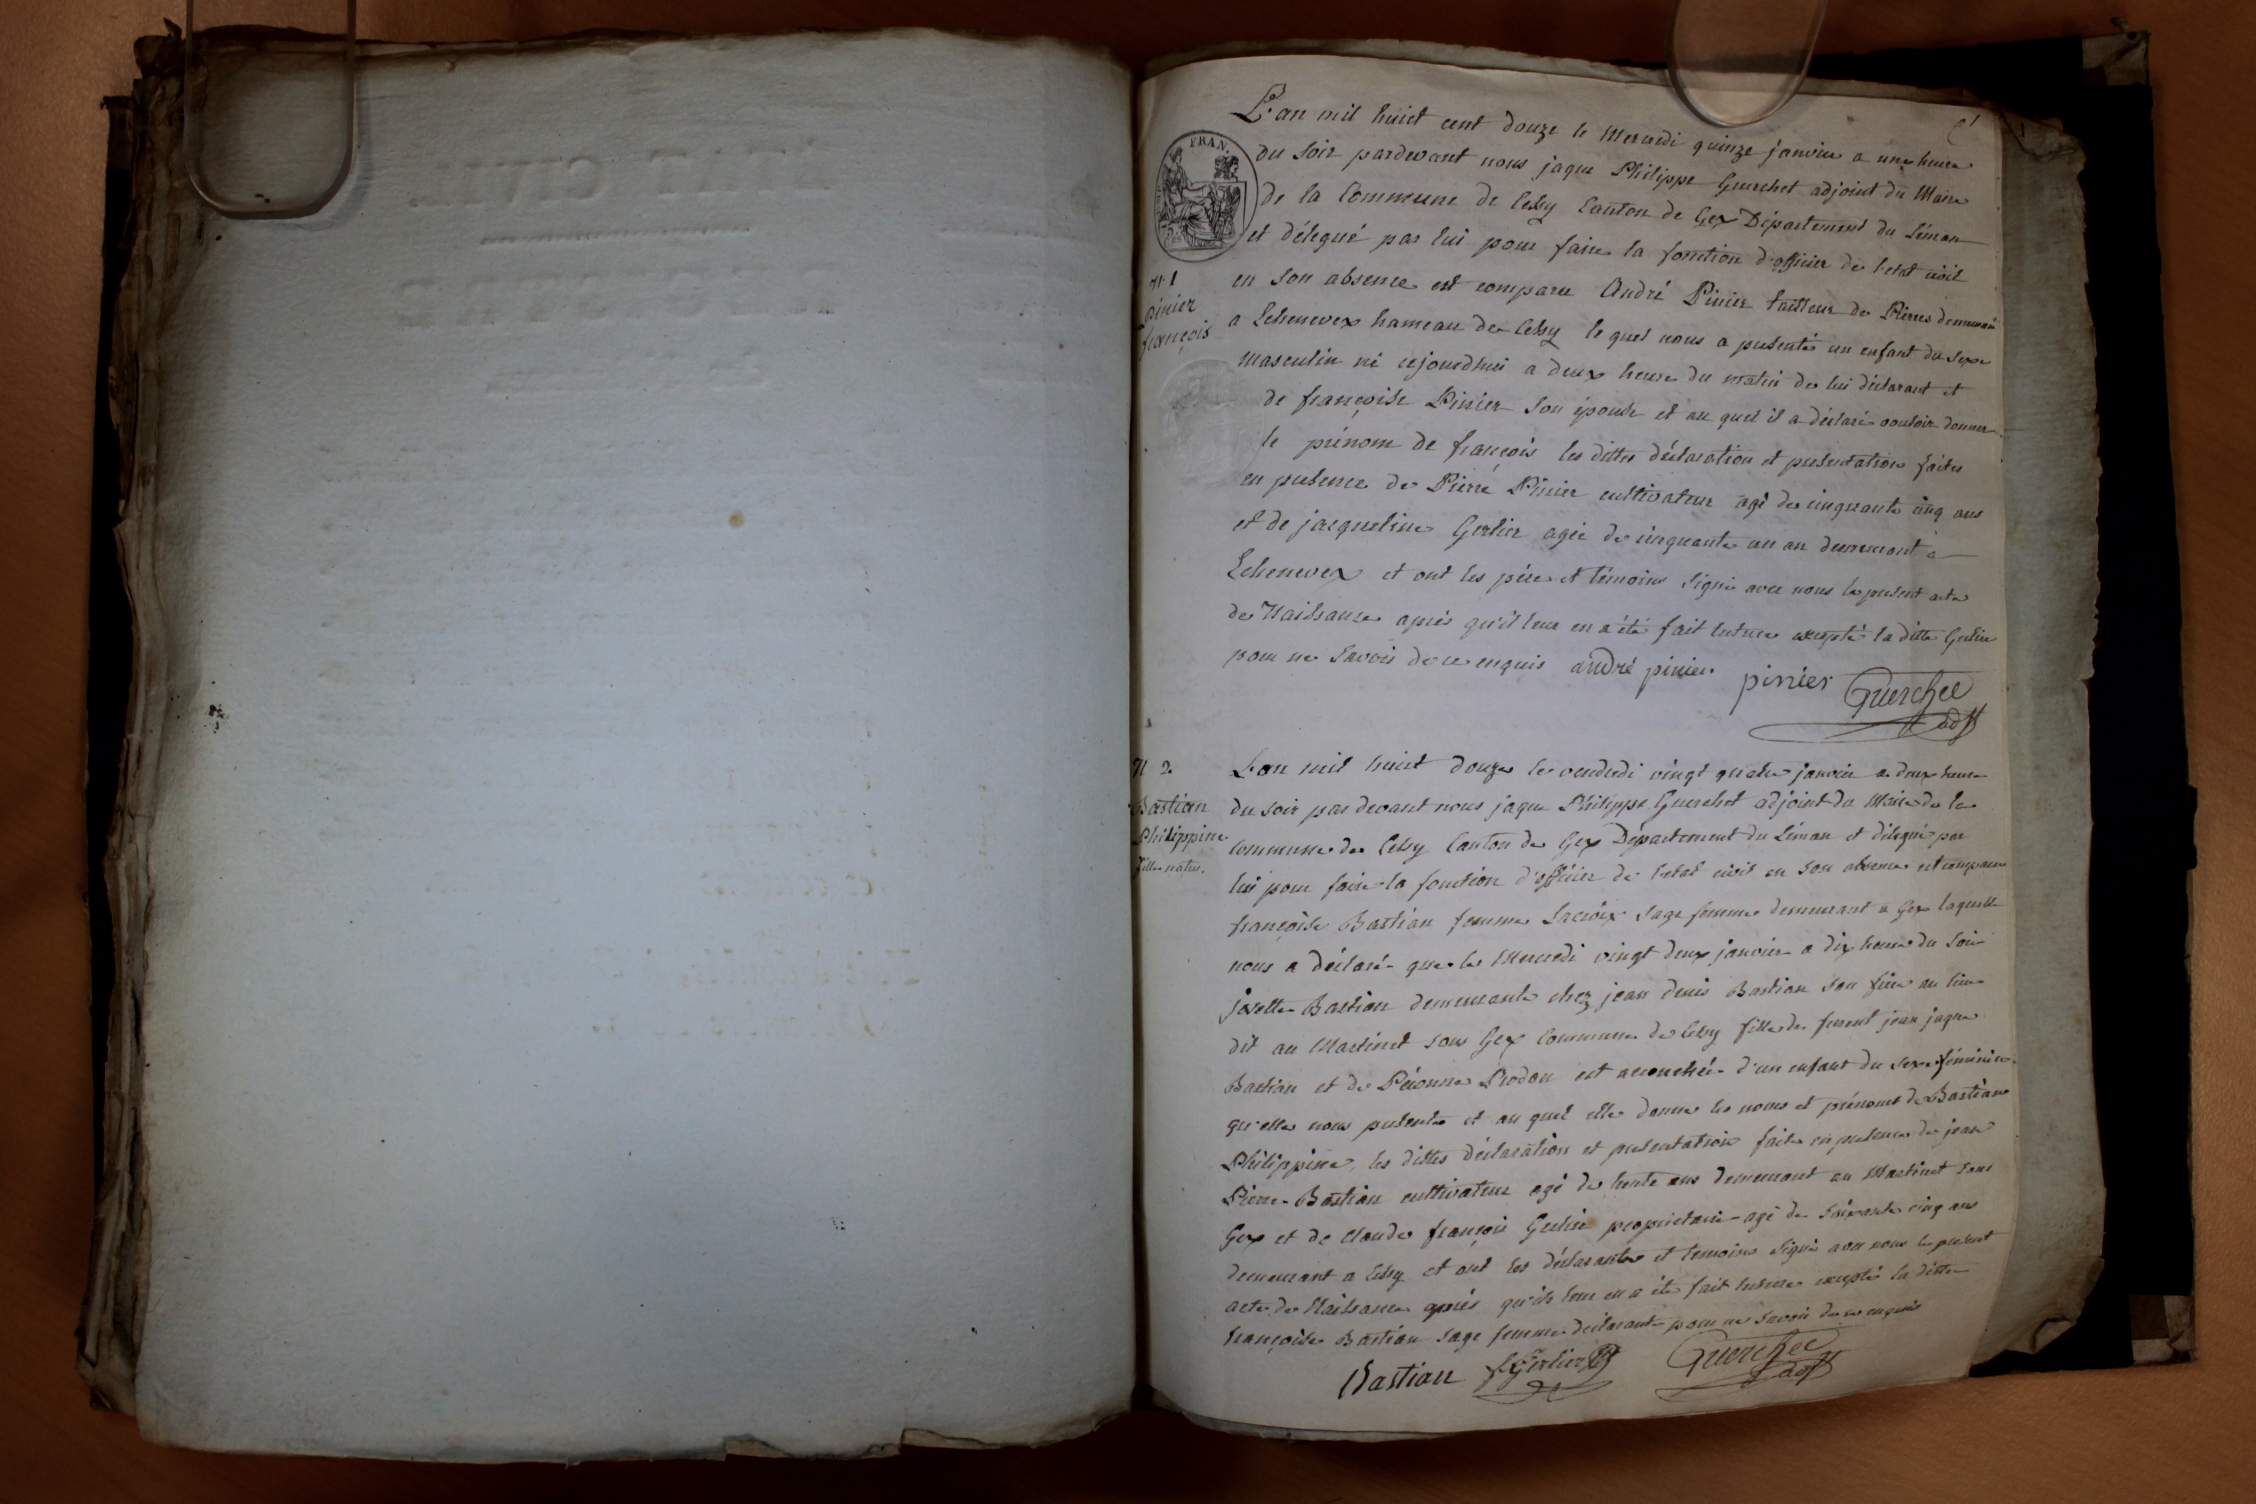 L'an mil huict cent douze le Mercredi quinze janvier a une heure
du soir pardevant nous jaque Philippe Guerchet adjoint du Maire
de la Commune de Cessy Canton de Gex Département du Léman
et délegué par lui pour faire la fonction d'officier de l'etat civil
en son absence est comparu André Pinier tailleur de Pierres demeurant
a Echenevex hameau de Cessy le quel nous a presenté un enfant du sexe
masculin né cejourdhui a deux heure du matin de lui déclarant et
de françoise Pinier son épouse et au quel il a déclaré vouloir donner
le prénom de françois les dittes déclaration et presentation faites
en presence de Pierre Pinier cultivateur agé de cinquante cinq ans
et de jacqueline Gerlier agée de cinquante un an demeurant à
Echenevex et ont les père et témoins signé avec nous le present acte
de Naissance après qu'il leur en a été fait lecture excepté la ditte Gerlier
pour ne savoir de ce enquis andré pinier pinier Guerchet
adjt
FRAN.
N. 1
pinier
françois
N 2.
Bastian
Philippine
fille natur.
L'an mil huict douze le vendredi vingt quatre janvier a deux heure
du soir par devant nous jaque Philippe Guerchet adjoint du Maire de la
commune de Cessy Canton de Gex Département du Léman et délegué par
lui pour faire la fonction d'officier de l'etat civil en son absence est comparue
françoise Bastian femme Lacroix sage femme demeurant a Gex laquelle
nous a déclaré que le Mercredi vingt deux janvier a dix heure du soir
josette Bastian demeurante chez jean denis Bastian son frere au lieu
dit au Martinet sous Gex Commune de Cessy fille de furent jean jaque
Bastian et de Péronne Prodon est accouchée d'un enfant du sexe féminin
qu'elle nous presente et au quel elle donne les noms et prénoms de Bastian
Philippine, les dittes déclaration et presentation faite en presence de jean
Pierre Bastian cultivateur agé de trente ans demeurant au Martinet sous
Gex et de Claude françois Gerlier proprietaire agé de soixante cinq ans
demeurant a Cessy et ont les déclarante et temoins signé avec nous le present
acte de Naissance après qu'ils leur en a été fait lecture excepté la ditte
françoise Bastian sage femme déclarant pour ne savoir de ce enquis
Bastian f Gerlier Guerchet
adjt